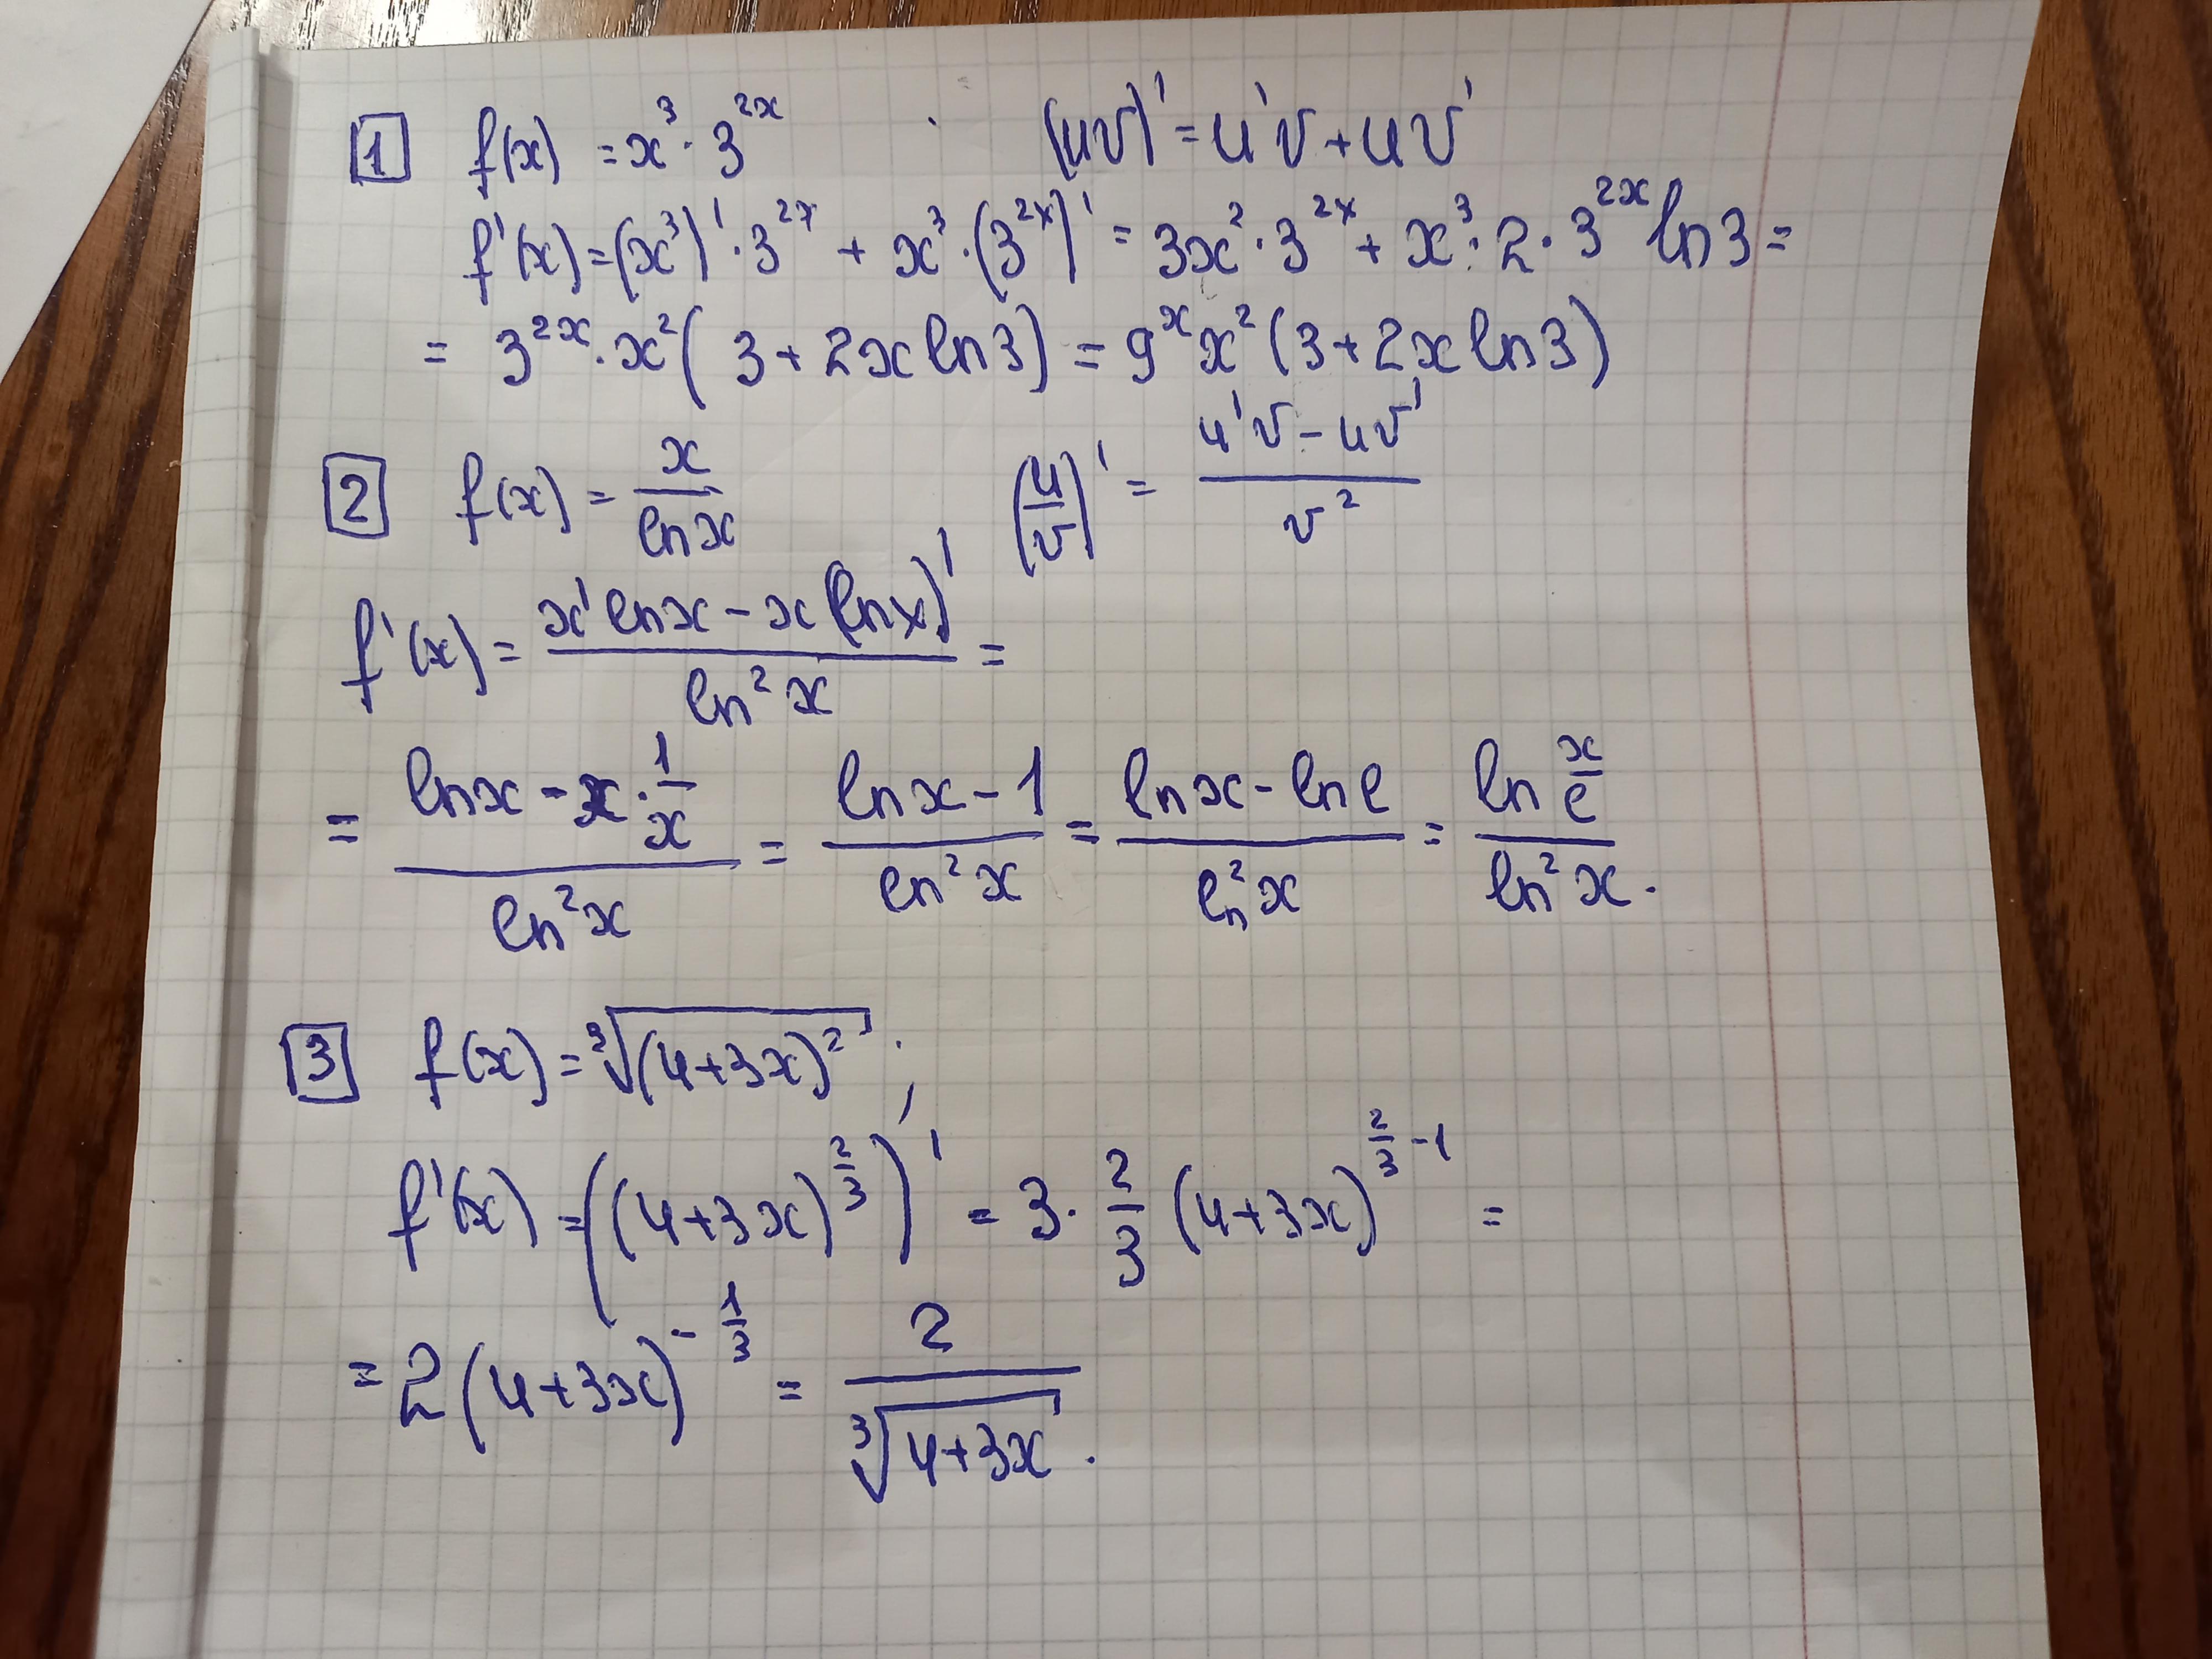 1 f(x) = x³ · 3²ˣ (uv)' = u'v + uv'
f'(x) = (x³)' · 3²ˣ + x³ · (3²ˣ)' = 3x² · 3²ˣ + x³ · 2 · 3²ˣ ln 3 =
= 3²ˣ · x² (3 + 2x ln 3) = 9ˣ x² (3 + 2x ln 3)
2 f(x) = x/ln x (u/v)' = (u'v - uv')/v²
f'(x) = (x' ln x - x (ln x)')/ln² x =
= (ln x - x · 1/x)/ln² x = (ln x - 1)/ln² x = (ln x - ln e)/ln² x = (ln x/e)/ln² x.
3 f(x) = ³√((4+3x)²) ;
f'(x) = ((4+3x)^(2/3))' = 3 · 2/3 (4+3x)^(2/3 - 1) =
= 2 (4+3x)^(-1/3) = 2/³√(4+3x) .